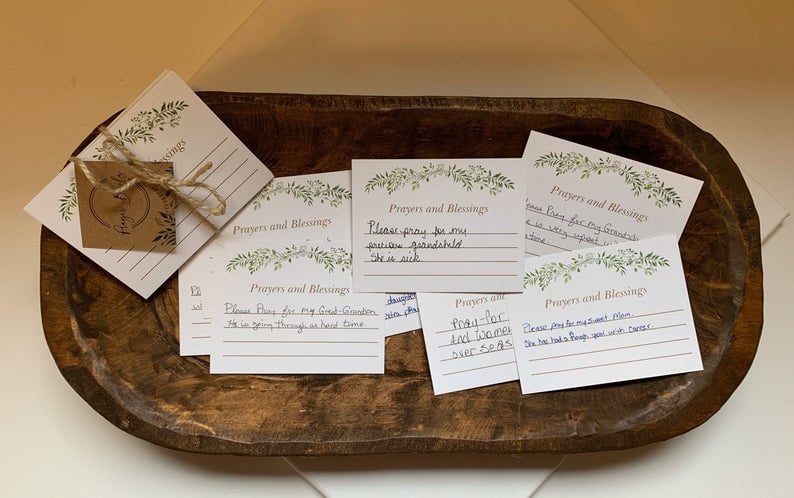 Prayer Bowls
Blessings
Prayers and Blessings
Please pray for my
precious grandchild.
She is sick.
Prayers and Blessings
Please Pray for my Grandson
is very upset
time.
Prayers and Blessings
Please Pray for my Great-Grandson.
He is going through a hard time.
daughter
Prayers and
Pray for
and women
over seas
Prayers and Blessings
Please pray for my sweet Mom.
She has had a rough year with cancer.